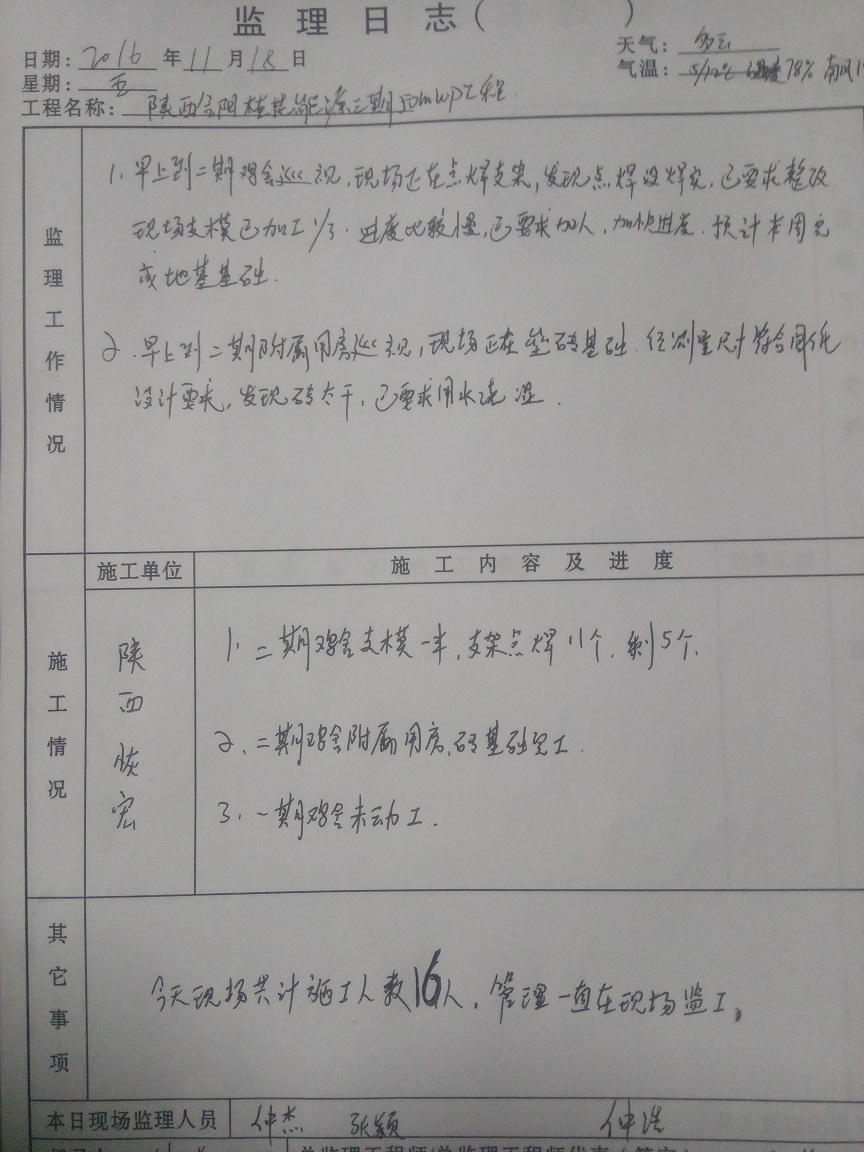 监理日志( )
日期: 2016 年 11 月 18 日
天气: 多云
星期: 五
气温: 5/12℃ 湿度78% 南风
工程名称: 陕西合阳 二期50MWP工程
监理工作情况
1. 早上到二期鸡舍巡视,现场正在点焊支架,发现点焊没焊实,已要求整改
现场支模已加工1/3.进度比较慢,已要求加人,加快进度.预计本周完
成地基基础.
2.早上到二期附属用房巡视,现场正在垫砖基础.经测量尺寸符合图纸
设计要求,发现砖太干,已要求用水浇湿.
施工情况
施工单位
施工内容及进度
陕西恢宏
1. 二期鸡舍支模一半,支架点焊11个.剩5个.
2、二期鸡舍附属用房,砖基础完工.
3、一期鸡舍未动工.
其它事项
今天现场共计施工人数16人,管理一直在现场监工。
本日现场监理人员 仲杰 张颖 仲浩
总监理工程师/总监理工程师代表(签字)